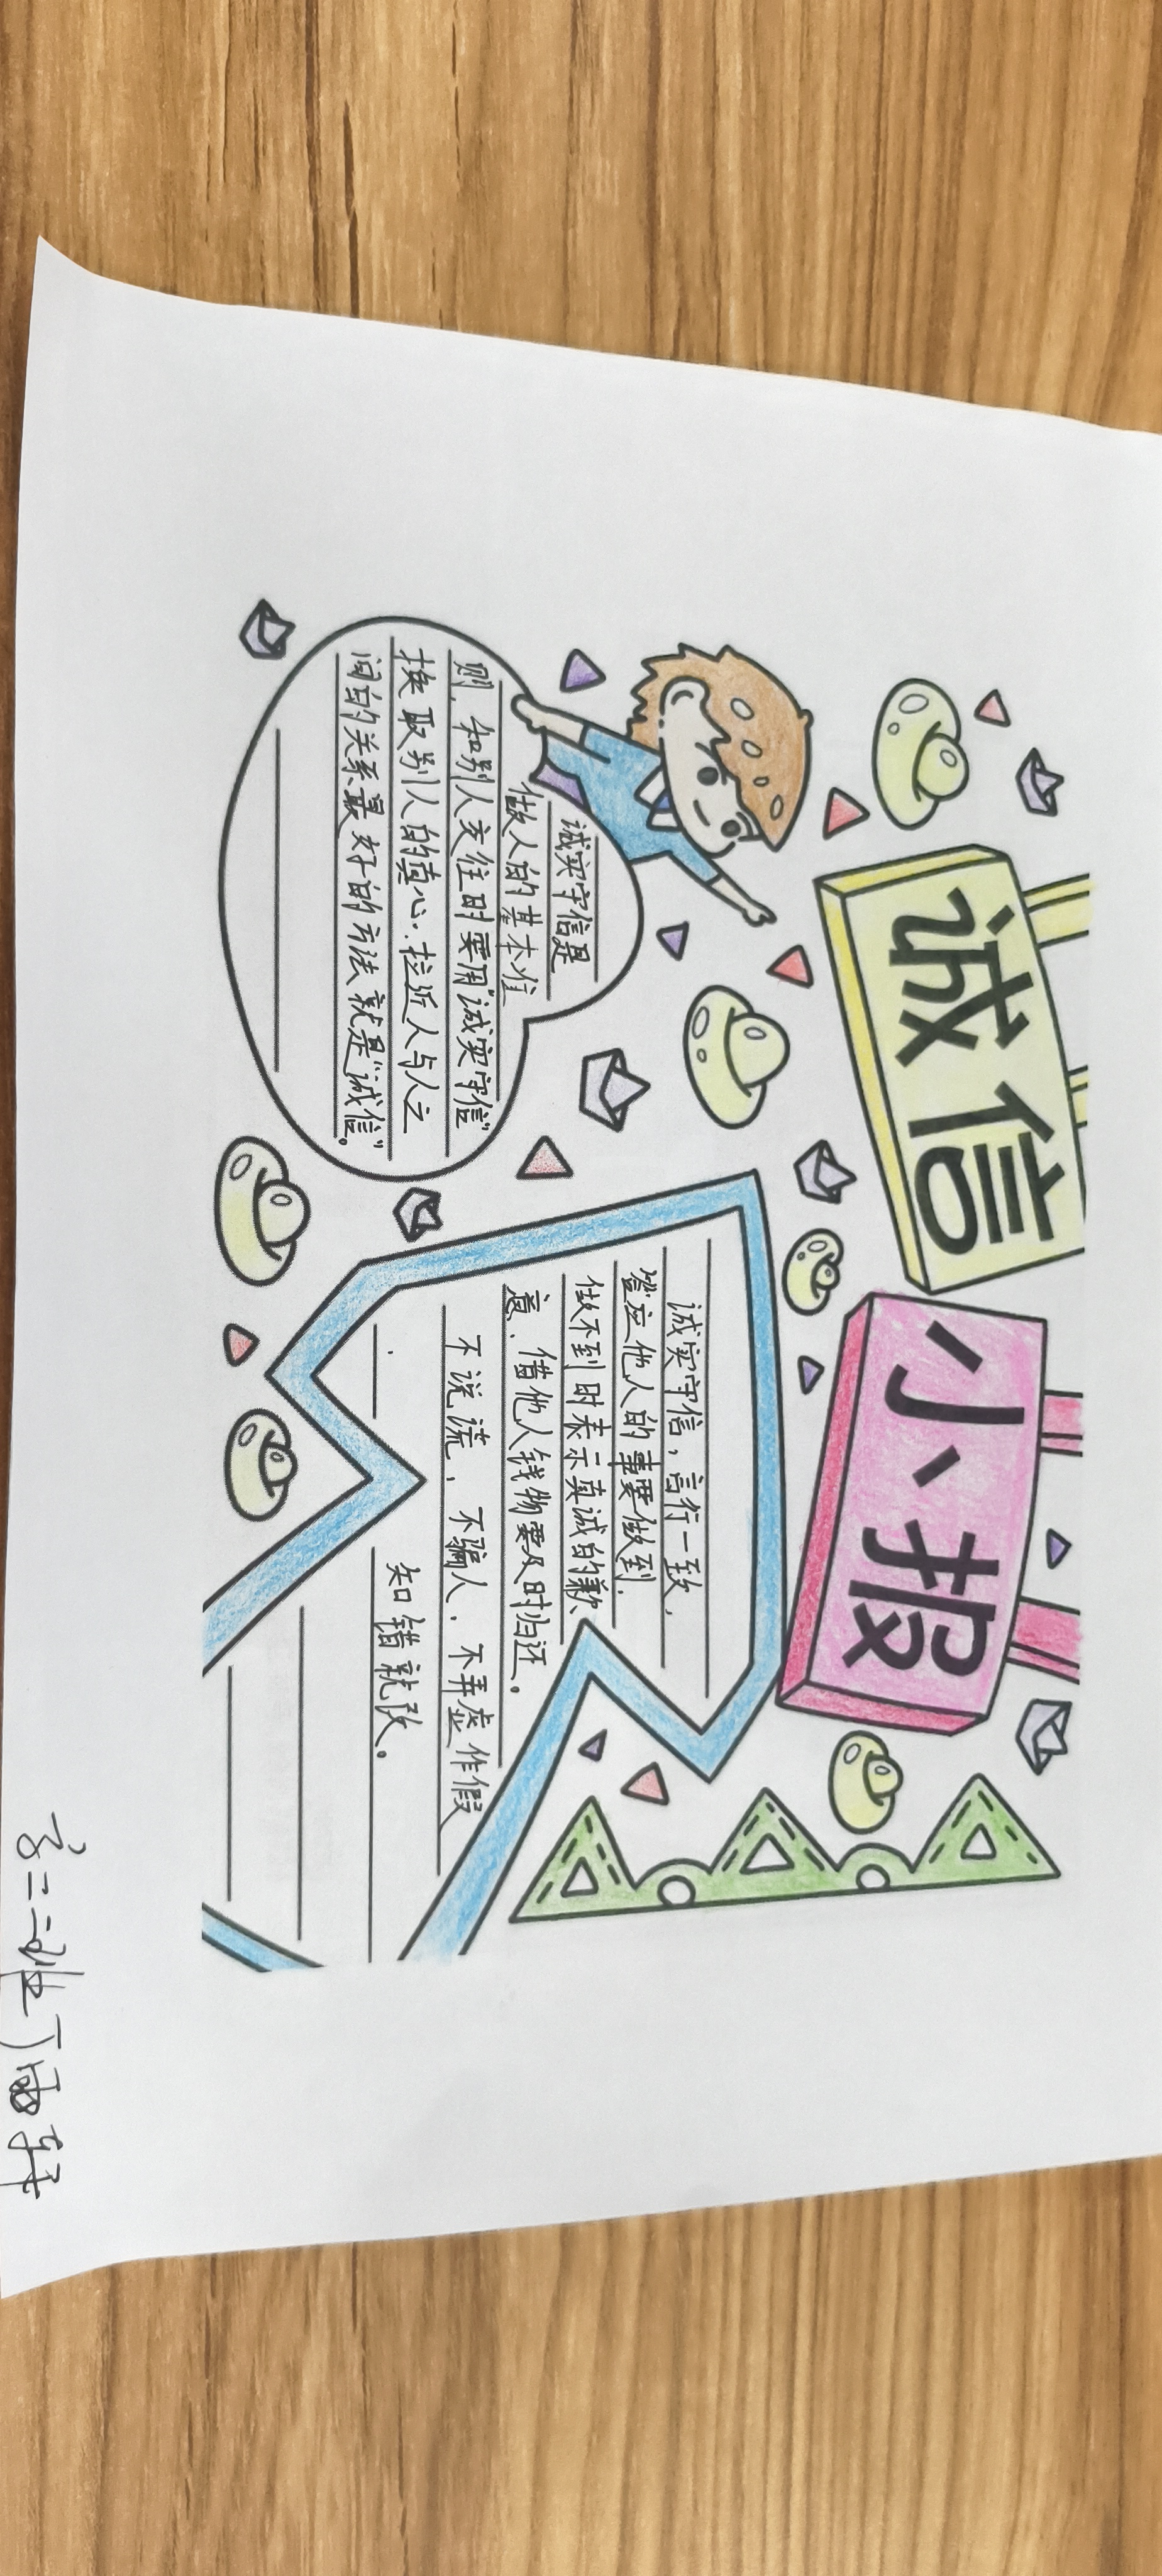 诚信
小报
诚实守信是
做人的基本准
则，和别人交往时要用“诚实守信”
换取别人的真心.拉近人与人之
间的关系最好的方法就是“诚信”。
诚实守信，言行一致，
答应他人的事要做到，
做不到时表示真诚的歉
意，借他人钱物要及时归还。
不说谎，不骗人，不弄虚作假
知错就改。
二二班丁雨轩